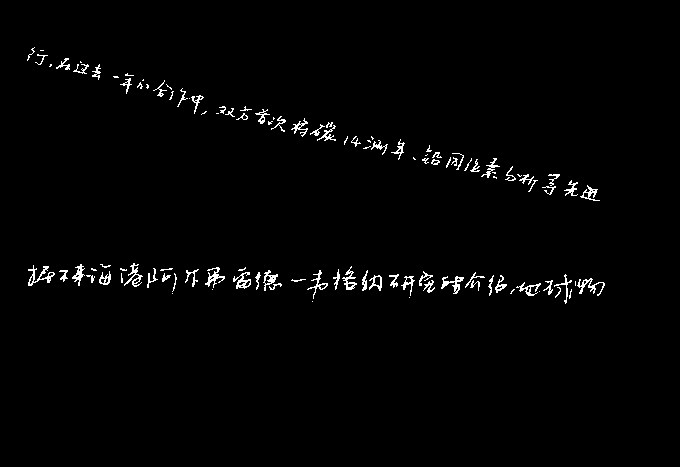 行,在过去一年的合作中,双方首次将碳14测年、铅同位素分析等先进
据不来梅港阿尔弗雷德—韦格纳研究所介绍,地球物